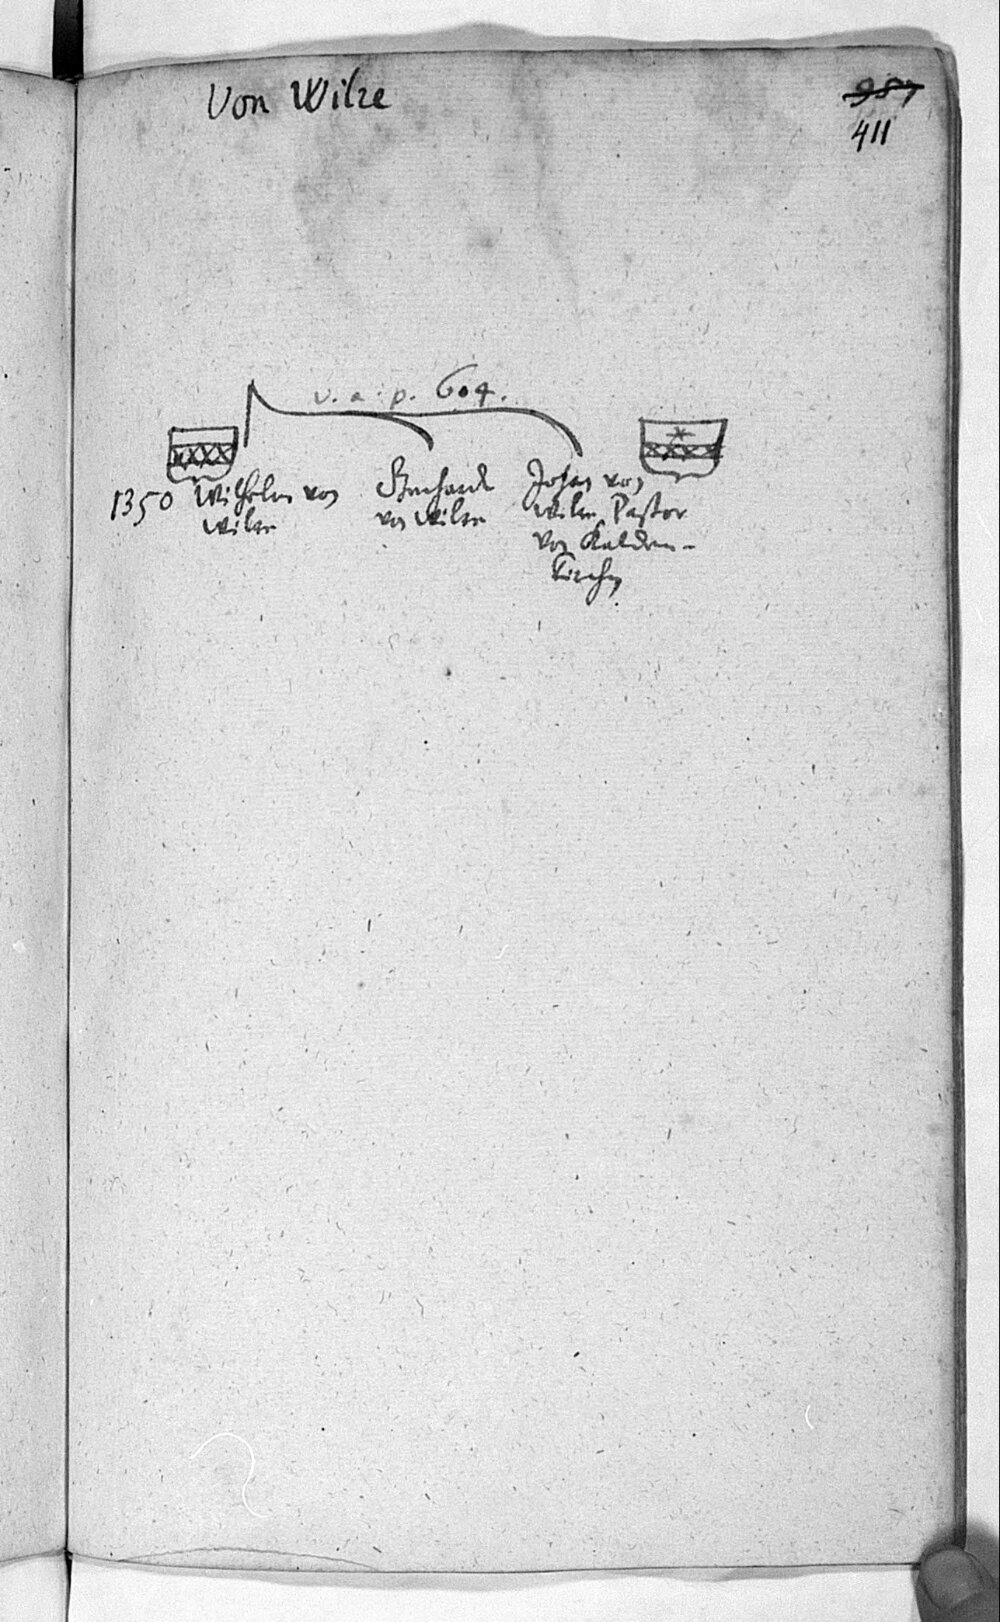 Von Wilre
987
411
v. a. p. 604.
1350 Wilhelm von
wilre
Gerhardt
von Wilre
Johan von
wilre Pastor
von Kalden-
kirchen